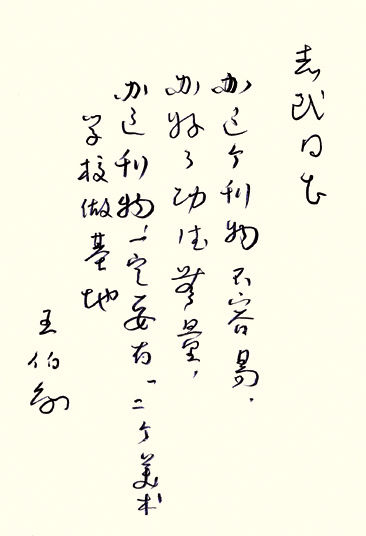 志民同志
办这个刊物不容易．
办好了功德无量，
办这刊物一定要有一二个美术
学校做基地
王伯敏